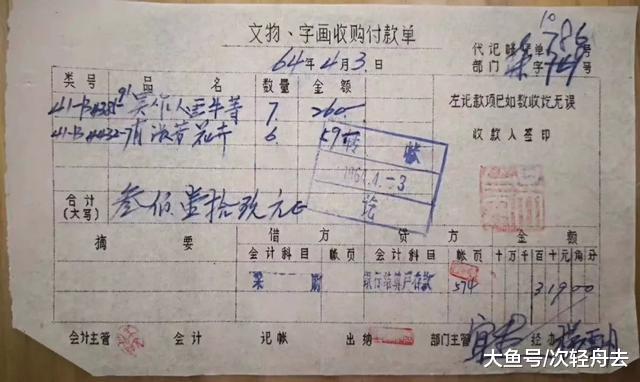 文物、字画收购付款单
10
代记账凭单 786 号
64年4月3日
部门 采字749号
类号 品名 数量 金额
吴作人 牛等 7. 260
花卉 6. 59
左记款项已如数收讫无误
收款人签印
转帐
1964.4.-3
讫
合计
(大写)
叁佰壹拾玖元正
摘要 借方 贷方 金额
会计科目 帐页 会计科目 帐页 十万千百十元角分
采购 银行结算户存款 574 31900
会计主管 会计 记帐 出纳 部门主管 经办
大鱼号/次轻舟去